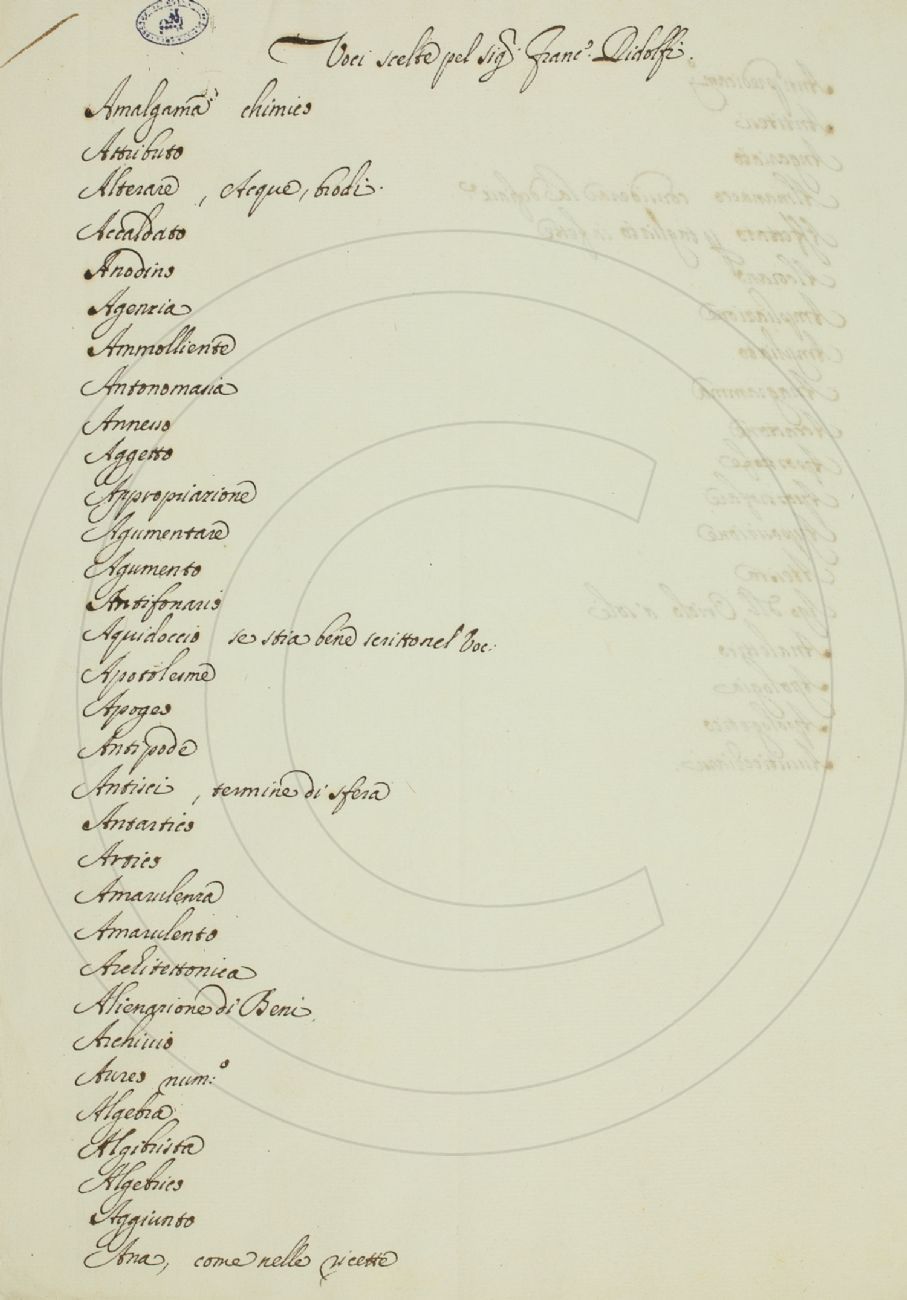 Voci scelte pel sig.r Franc.o Ridolfi.
Amalgama chimico
Attributo
Alterare, Acque, brodi.
Accaldato
Anodino
Agenzia
Ammolliente
Antonomasia
Annesso
Aggetto
Appropriazione
Agumentare
Agumento
Antifonario
Aquidoccio se stia bene scritto nel Voc:
Apotolesme
Apogeo
Antipode
Antisci, termine di sfera
Antartico
Artico
Amarulenza
Amarulento
Architettonica
Alienazione di Beni
Archivio
Aureo num:o
Algebra
Algibrista
Algebrico
Aggiunto
Ana, come nelle ricette